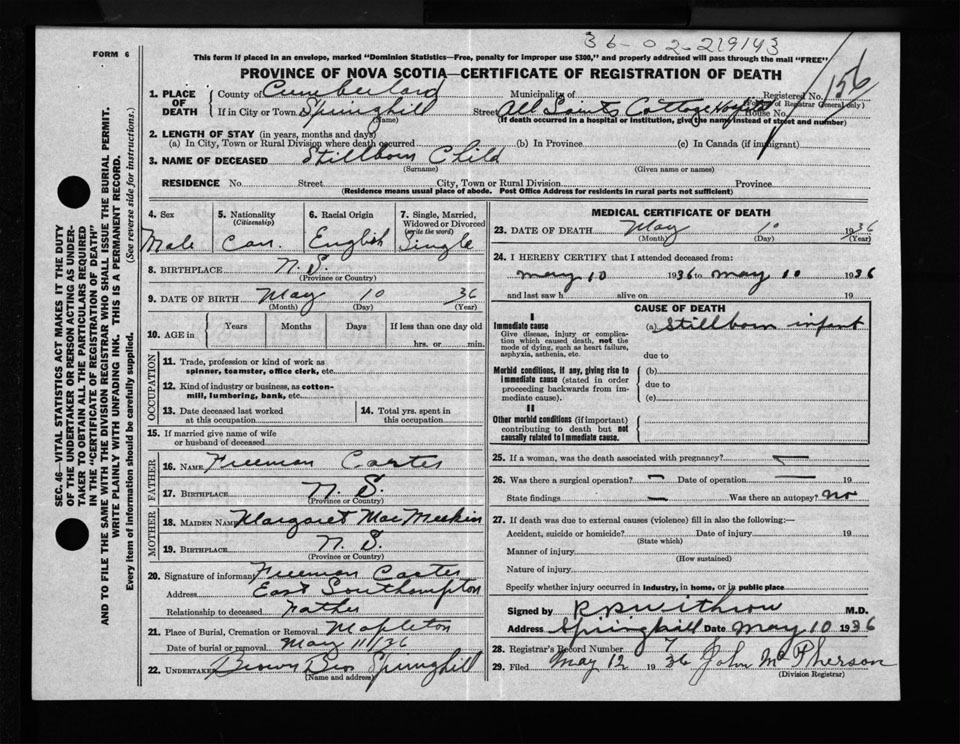 36-02-219143
FORM 6
This form if placed in an envelope, marked "Dominion Statistics—Free, penalty for improper use $300," and properly addressed will pass through the mail "FREE"
PROVINCE OF NOVA SCOTIA—CERTIFICATE OF REGISTRATION OF DEATH
1. PLACE OF DEATH
County of Cumberland Municipality of Registered No. 156
(For use of Registrar General only)
If in City or Town Springhill Street All Saints Cottage Hospital House No.
(Name) (If death occurred in a hospital or institution, give its name instead of street and number)
2. LENGTH OF STAY (in years, months and days)
(a) In City, Town or Rural Division where death occurred (b) In Province (c) In Canada (if immigrant)
3. NAME OF DECEASED Stillborn Child
(Surname) (Given name or names)
RESIDENCE No. Street City, Town or Rural Division Province
(Residence means usual place of abode. Post Office Address for residents in rural parts not sufficient)
4. Sex
Male
5. Nationality
(Citizenship)
Can.
6. Racial Origin
English
7. Single, Married,
Widowed or Divorced
(write the word)
Single
8. BIRTHPLACE N. S.
(Province or Country)
9. DATE OF BIRTH May 10 36
(Month) (Day) (Year)
10. AGE in
Years Months Days If less than one day old
hrs. or min.
OCCUPATION
11. Trade, profession or kind of work as
spinner, teamster, office clerk, etc.
12. Kind of industry or business, as cotton-
mill, lumbering, bank, etc.
13. Date deceased last worked
at this occupation
14. Total yrs. spent in
this occupation
15. If married give name of wife
or husband of deceased
FATHER
16. NAME Freeman Carter
17. BIRTHPLACE N. S.
(Province or Country)
MOTHER
18. MAIDEN NAME Margaret MacMeekin
19. BIRTHPLACE N. S.
(Province or Country)
20. Signature of informant Freeman Carter
Address East Southampton
Relationship to deceased Father
21. Place of Burial, Cremation or Removal Mapleton
Date of burial or removal May 11/36
22. UNDERTAKER Brown Bros Springhill
(Name and address)
MEDICAL CERTIFICATE OF DEATH
23. DATE OF DEATH May 10 1936
(Month) (Day) (Year)
24. I HEREBY CERTIFY that I attended deceased from:
May 10 1936 to May 10 1936
and last saw h alive on 19
CAUSE OF DEATH
I
Immediate cause
Give disease, injury or complica-
tion which caused death, not the
mode of dying, such as heart failure,
asphyxia, asthenia, etc.
(a) Stillborn infant
due to
Morbid conditions, if any, giving rise to
immediate cause (stated in order
proceeding backwards from im-
mediate cause).
(b)
due to
(c)
II
Other morbid conditions (if important)
contributing to death but not
causally related to immediate cause.
25. If a woman, was the death associated with pregnancy? —
26. Was there a surgical operation? — Date of operation — 19
State findings — Was there an autopsy? no
27. If death was due to external causes (violence) fill in also the following:—
Accident, suicide or homicide? Date of injury 19
(State which)
Manner of injury
(How sustained)
Nature of injury
Specify whether injury occurred in industry, in home, or in public place
Signed by Withrow M.D.
Address Springhill Date May 10 1936
28. Registrar's Record Number
29. Filed May 12 1936 John McPherson
(Division Registrar)
SEC. 46—VITAL STATISTICS ACT MAKES IT THE DUTY
OF THE UNDERTAKER OR PERSON ACTING AS UNDER-
TAKER TO OBTAIN ALL THE PARTICULARS REQUIRED
IN THE "CERTIFICATE OF REGISTRATION OF DEATH"
AND TO FILE THE SAME WITH THE DIVISION REGISTRAR WHO SHALL ISSUE THE BURIAL PERMIT.
WRITE PLAINLY WITH UNFADING INK. THIS IS A PERMANENT RECORD.
Every item of information should be carefully supplied. (See reverse side for instructions.)